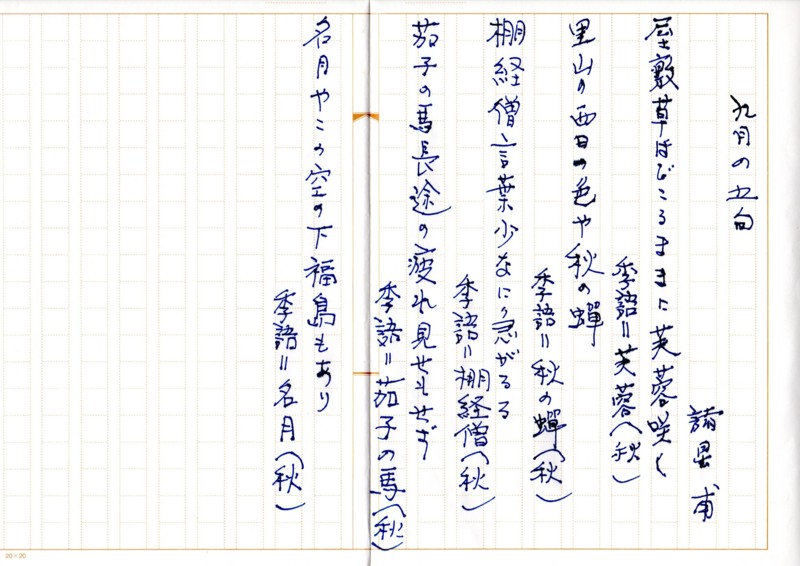 九月の五句
諸 甫
屋敷草はびこるままに芙蓉咲く
季語=芙蓉(秋)
里山の西日の色や秋の蟬
季語=秋の蟬(秋)
棚経僧言葉少なに急がるる
季語=棚経僧(秋)
茄子の馬長途の疲れ見せもせず
季語=茄子の馬(秋)
名月やこの空の下福島もあり
季語=名月(秋)
20×20